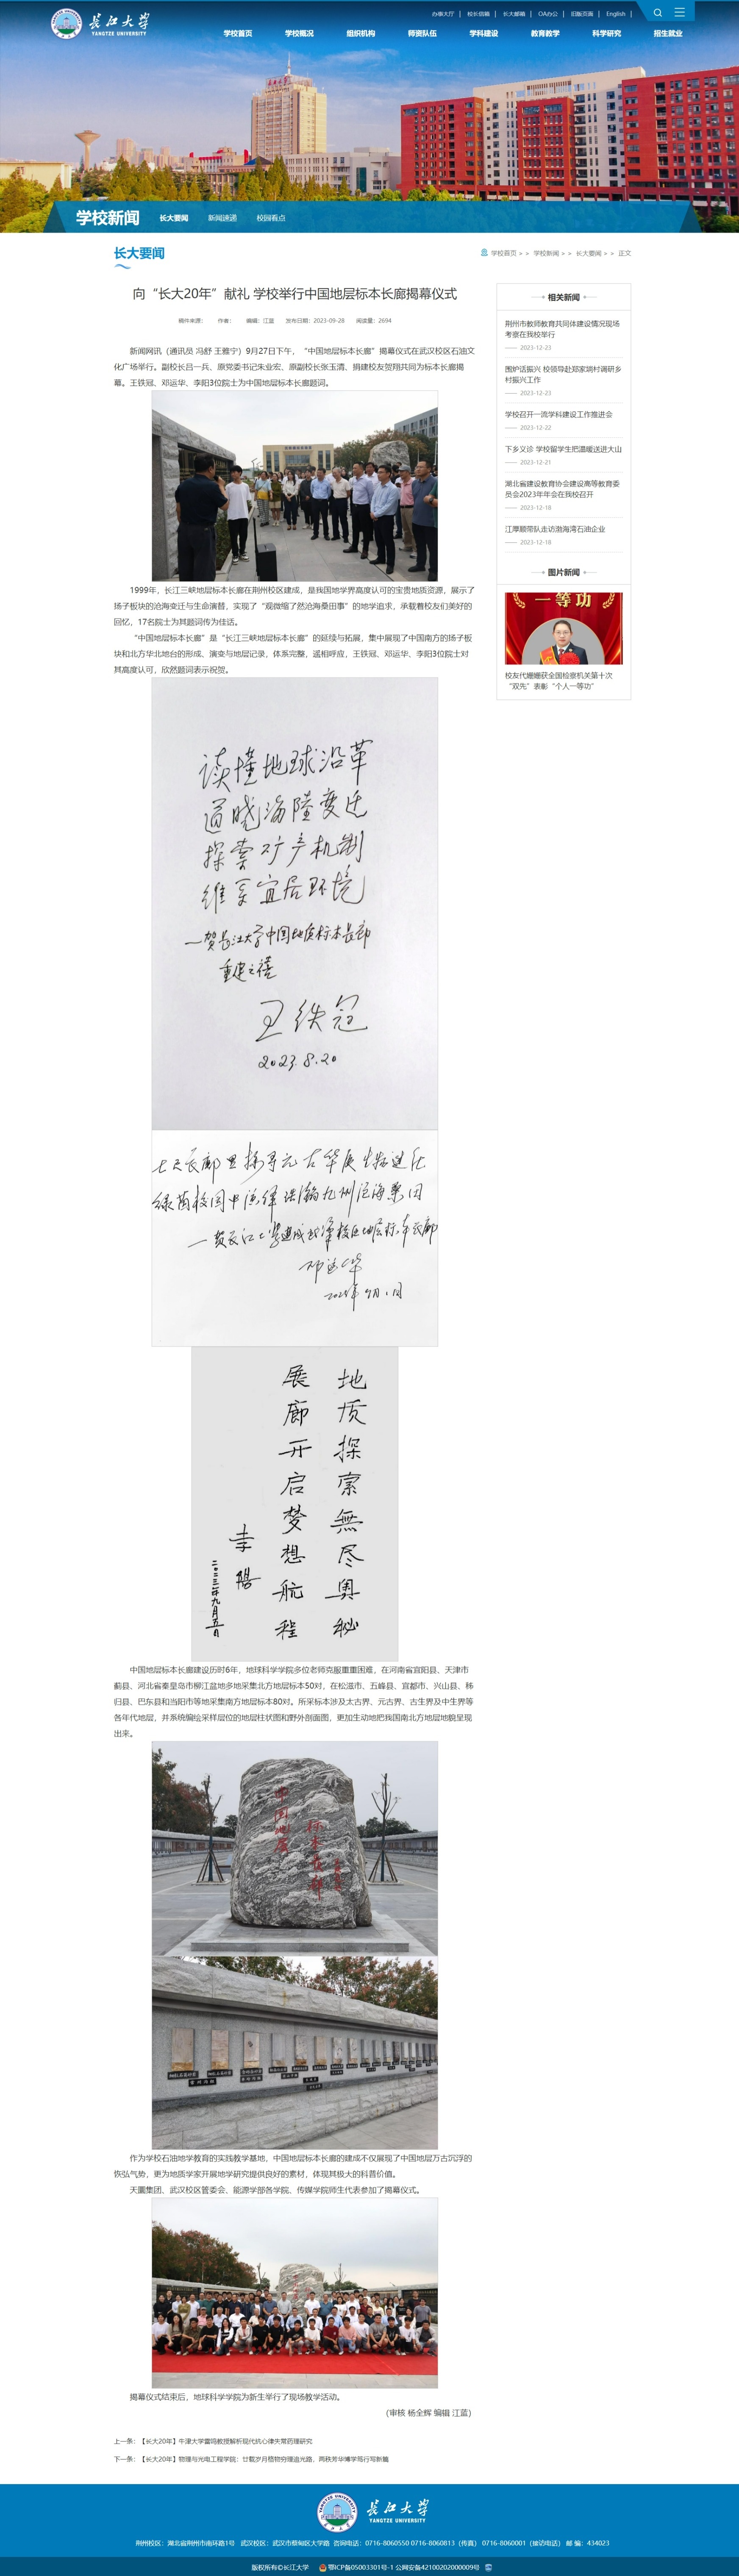 长江大学
YANGTZE UNIVERSITY
办事大厅 | 校长信箱 | 长大邮箱 | OA办公 | 旧版页面 | English |
学校首页 学校概况 组织机构 师资队伍 学科建设 教育教学 科学研究 招生就业
学校新闻 长大要闻 新闻速递 校园看点
长大要闻
学校首页 >> 学校新闻 >> 长大要闻 >> 正文
向“长大20年”献礼 学校举行中国地层标本长廊揭幕仪式
稿件来源： 作者： 编辑：江蓝 发布日期：2023-09-28 阅读量：2694
新闻网讯（通讯员 冯舒 王雅宁）9月27日下午，“中国地层标本长廊”揭幕仪式在武汉校区石油文
化广场举行。副校长吕一兵、原党委书记朱业宏、原副校长张玉清、捐建校友贺翔共同为标本长廊揭
幕。王铁冠、邓运华、李阳3位院士为中国地层标本长廊题词。
1999年，长江三峡地层标本长廊在荆州校区建成，是我国地学界高度认可的宝贵地质资源，展示了
扬子板块的沧海变迁与生命演替，实现了“观微缩了然沧海桑田事”的地学追求，承载着校友们美好的
回忆，17名院士为其题词传为佳话。
“中国地层标本长廊”是“长江三峡地层标本长廊”的延续与拓展，集中展现了中国南方的扬子板
块和北方华北地台的形成、演变与地层记录，体系完整，遥相呼应，王铁冠、邓运华、李阳3位院士对
其高度认可，欣然题词表示祝贺。
读懂地球沿革
通晓海陆变迁
探索矿产机制
维系宜居环境
一贺长江大学中国地质标本长廊
重建之禧
王铁冠
2023.8.20
邓运华
地质探索無尽奥秘
展廊开启梦想航程
李阳
二〇二三年九月五日
中国地层标本长廊建设历时6年，地球科学学院多位老师克服重重困难，在河南省宜阳县、天津市
蓟县、河北省秦皇岛市柳江盆地多地采集北方地层标本50对，在松滋市、五峰县、宜都市、兴山县、秭
归县、巴东县和当阳市等地采集南方地层标本80对。所采标本涉及太古界、元古界、古生界及中生界等
各年代地层，并系统编绘采样层位的地层柱状图和野外剖面图，更加生动地把我国南北方地层地貌呈现
出来。
中国地层
标本长廊
作为学校石油地学教育的实践教学基地，中国地层标本长廊的建成不仅展现了中国地层万古沉浮的
恢弘气势，更为地质学家开展地学研究提供良好的素材，体现其极大的科普价值。
天鹏集团，武汉校区管委会，能源学部各学院、传媒学院师生代表参加了揭幕仪式。
揭幕仪式结束后，地球科学学院为新生举行了现场教学活动。
（审核 杨全辉 编辑 江蓝）
上一条：【长大20年】牛津大学雷鸣教授解析现代抗心律失常药理研究
下一条：【长大20年】物理与光电工程学院：廿载岁月格物穷理追光路，两秩芳华博学笃行写新篇
相关新闻
荆州市教师教育共同体建设情况现场
考察在我校举行
2023-12-23
围炉话振兴 校领导赴郑家垴村调研乡
村振兴工作
2023-12-23
学校召开一流学科建设工作推进会
2023-12-22
下乡义诊 学校留学生把温暖送进大山
2023-12-21
湖北省建设教育协会建设高等教育委
员会2023年年会在我校召开
2023-12-18
江厚顺带队走访渤海湾石油企业
2023-12-18
图片新闻
一等功
校友代姗姗获全国检察机关第十次
“双先”表彰“个人一等功”
长江大学
YANGTZE UNIVERSITY
荆州校区：湖北省荆州市南环路1号 武汉校区：武汉市蔡甸区大学路 咨询电话：0716-8060550 0716-8060813（传真） 0716-8060001（接访电话） 邮 编：434023
版权所有©长江大学 鄂ICP备05003301号-1 公网安备42100202000009号